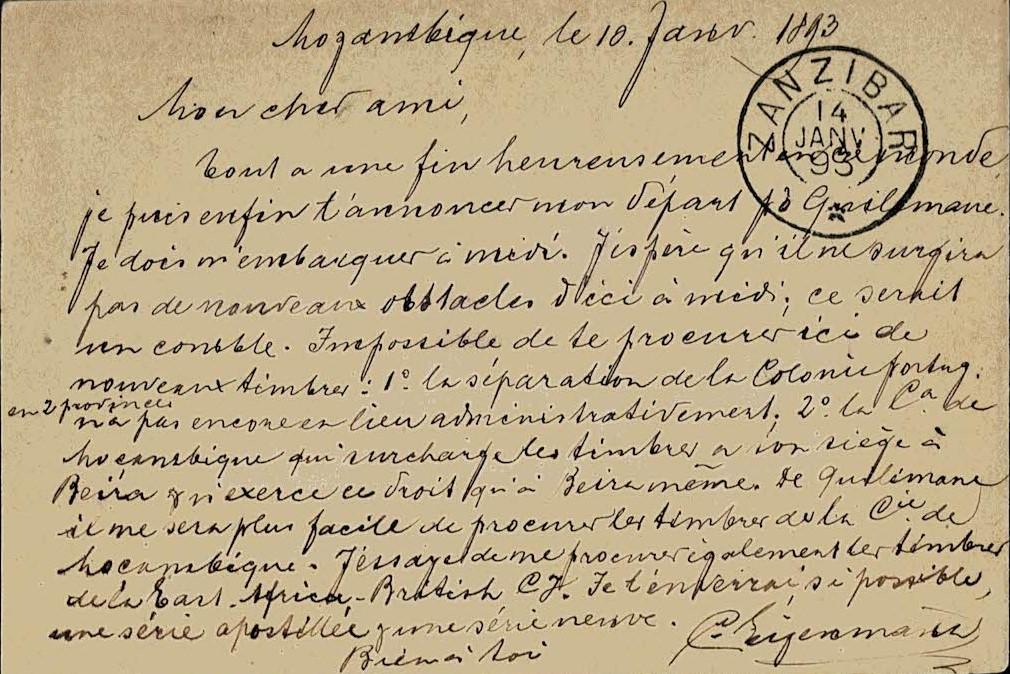 Mozambique, le 10. Janv. 1893
ZANZIBAR
14
JANV
93
Mon cher ami,
Tout a une fin heureusement en ce monde
je puis enfin t'annoncer mon départ pr Quilimane.
Je dois m'embarquer à midi. J'espère qu'il ne surgira
pas de nouveaux obstacles d'ici à midi; ce serait
un comble. Impossible de te procurer ici de
nouveaux timbres: 1° la séparation de la Colonie portug.
en 2 provinces
n'a pas encore eu lieu administrativement; 2° la Ca de
Mocambique qui surcharge les timbres a son siège à
Beira & n'exerce ce droit qu'à Beira même. De Quilimane
il me sera plus facile de procurer les timbres de la Cie de
Mocambique. J'essaye de me procurer également les timbres
de la East. Africa. British Cy. Je t'enverrai, si possible,
une série apostillée & une série neuve.
Bien à toi
Eigenmann